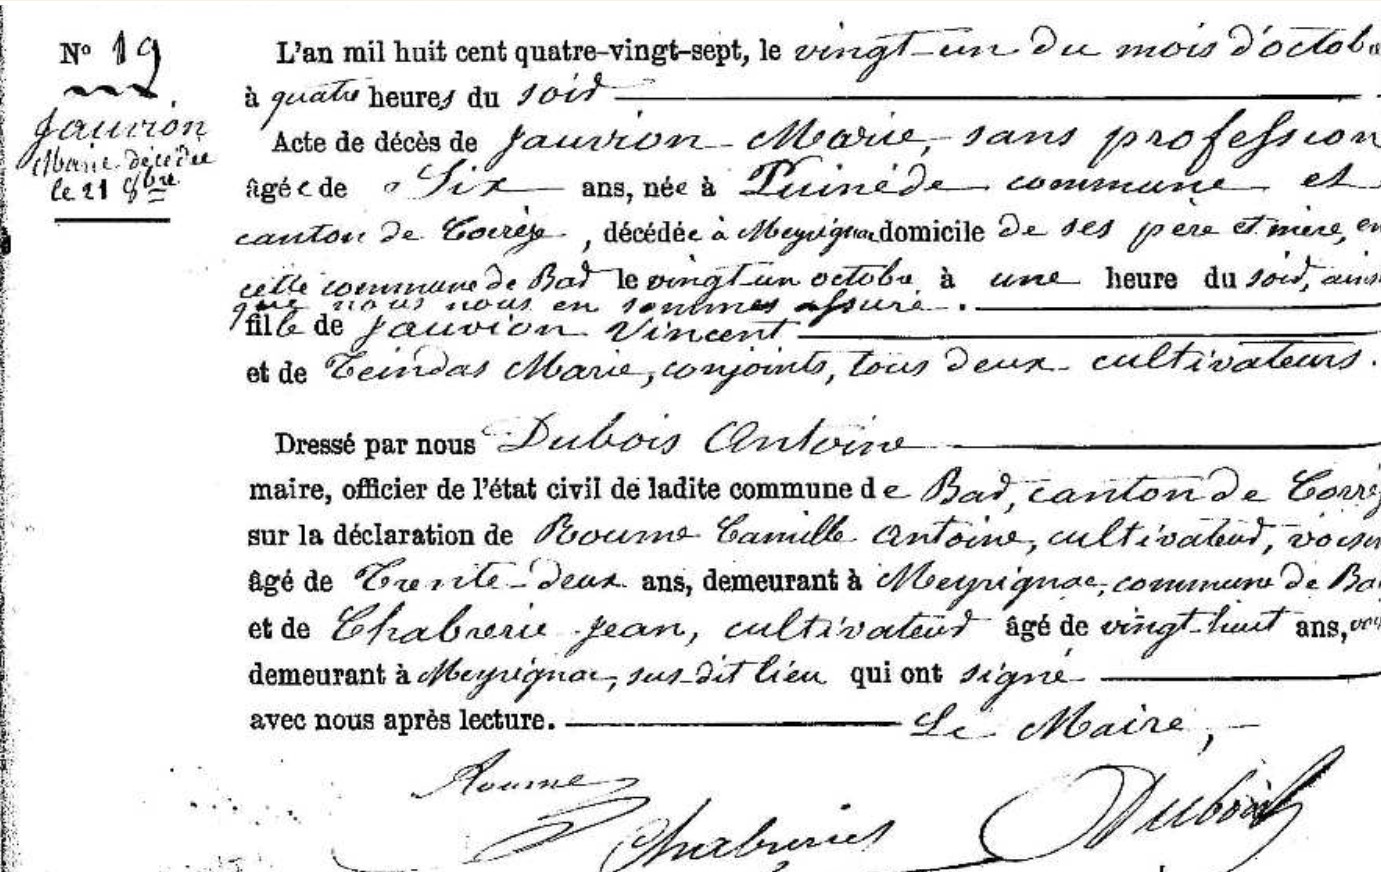 N° 19
Jauvion
Marie décédée
le 21 8bre
L'an mil huit cent quatre-vingt-sept, le vingt-un du mois d'octob
à quatre heures du soir
Acte de décès de Jauvion Marie, sans profession
âgée de Six ans, née à Puinéde commune et
canton de Corrèze, décédée à Meyrignac domicile de ses père et mère, en
cette commune de Bar le vingt un octobre à une heure du soir, ainsi
que nous nous en sommes assuré.
fille de Jauvion Vincent
et de Teindas Marie, conjoints, tous deux cultivateurs.
Dressé par nous Dubois Antoine
maire, officier de l'état civil de ladite commune de Bar, canton de Corrèz
sur la déclaration de Roume Camille Antoine, cultivateur, voisin
âgé de Trente-deux ans, demeurant à Meyrignac, commune de Ba
et de Chabrerie Jean, cultivateur âgé de vingt-huit ans, voi
demeurant à Meyrignac, sus-dit lieu qui ont signé
avec nous après lecture. Le Maire,
Roume
Chabreries Dubois